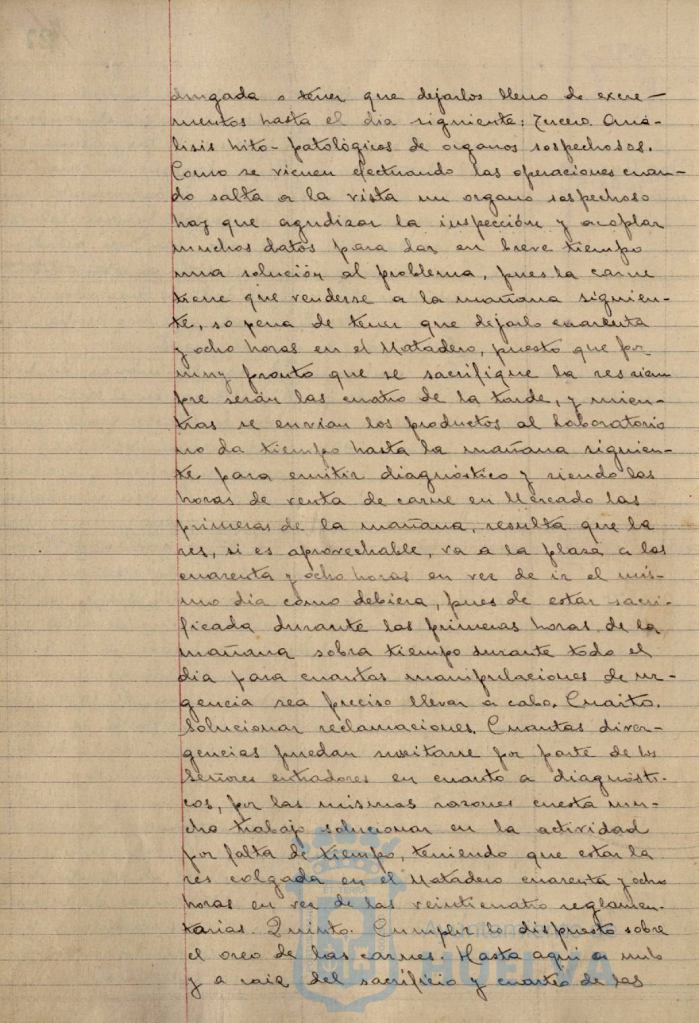 drugada o tener que dejarlos lleno de excre-
mentos hasta el dia siguiente: Tercero. Aná-
lisis hito-patológicos de organos sospechosos.
Como se vienen efectuando las operaciones cuan-
do salta a la vista un organo sospechoso
hay que agudizar la inspección y acoplar
muchos datos para dar en breve tiempo
una solución al problema, pues la carne
tiene que venderse a la mañana siguien-
te, so pena de tener que dejarlo cuarenta
y ocho horas en el Matadero, puesto que por
muy pronto que se sacrifique la res siem
pre serán las cuatro de la tarde, y mien-
tras se envian los productos al laboratorio
no da tiempo hasta la mañana siguien-
te para emitir diagnóstico y siendo las
horas de venta de carne en Mercado las
primeras de la mañana, resulta que la
res, si es aprovechable, va a la plaza a las
cuarenta y ocho horas en vez de ir el mis-
mo dia como debiera, pues de estar sacri-
ficada durante las primeras horas de la
mañana sobra tiempo durante todo el
dia para cuantas manipulaciones de ur-
gencia sea preciso llevar a cabo. Cuarto.
Solucionar reclamaciones. Cuantas diver-
gencias puedan suscitarse por parte de los
Señores entradores en cuanto a diagnósti-
cos, por las mismas razones cuesta mu-
cho trabajo solucionar en la actividad
por falta de tiempo, teniendo que estar la
res colgada en el Matadero cuarenta y ocho
horas en vez de las veinticuatro reglamen-
tarias. Quinto. Cumplir lo dispuesto sobre
el oreo de las carnes. Hasta aqui a
y a raiz del sacrificio y cuarteo de las
HUELVA